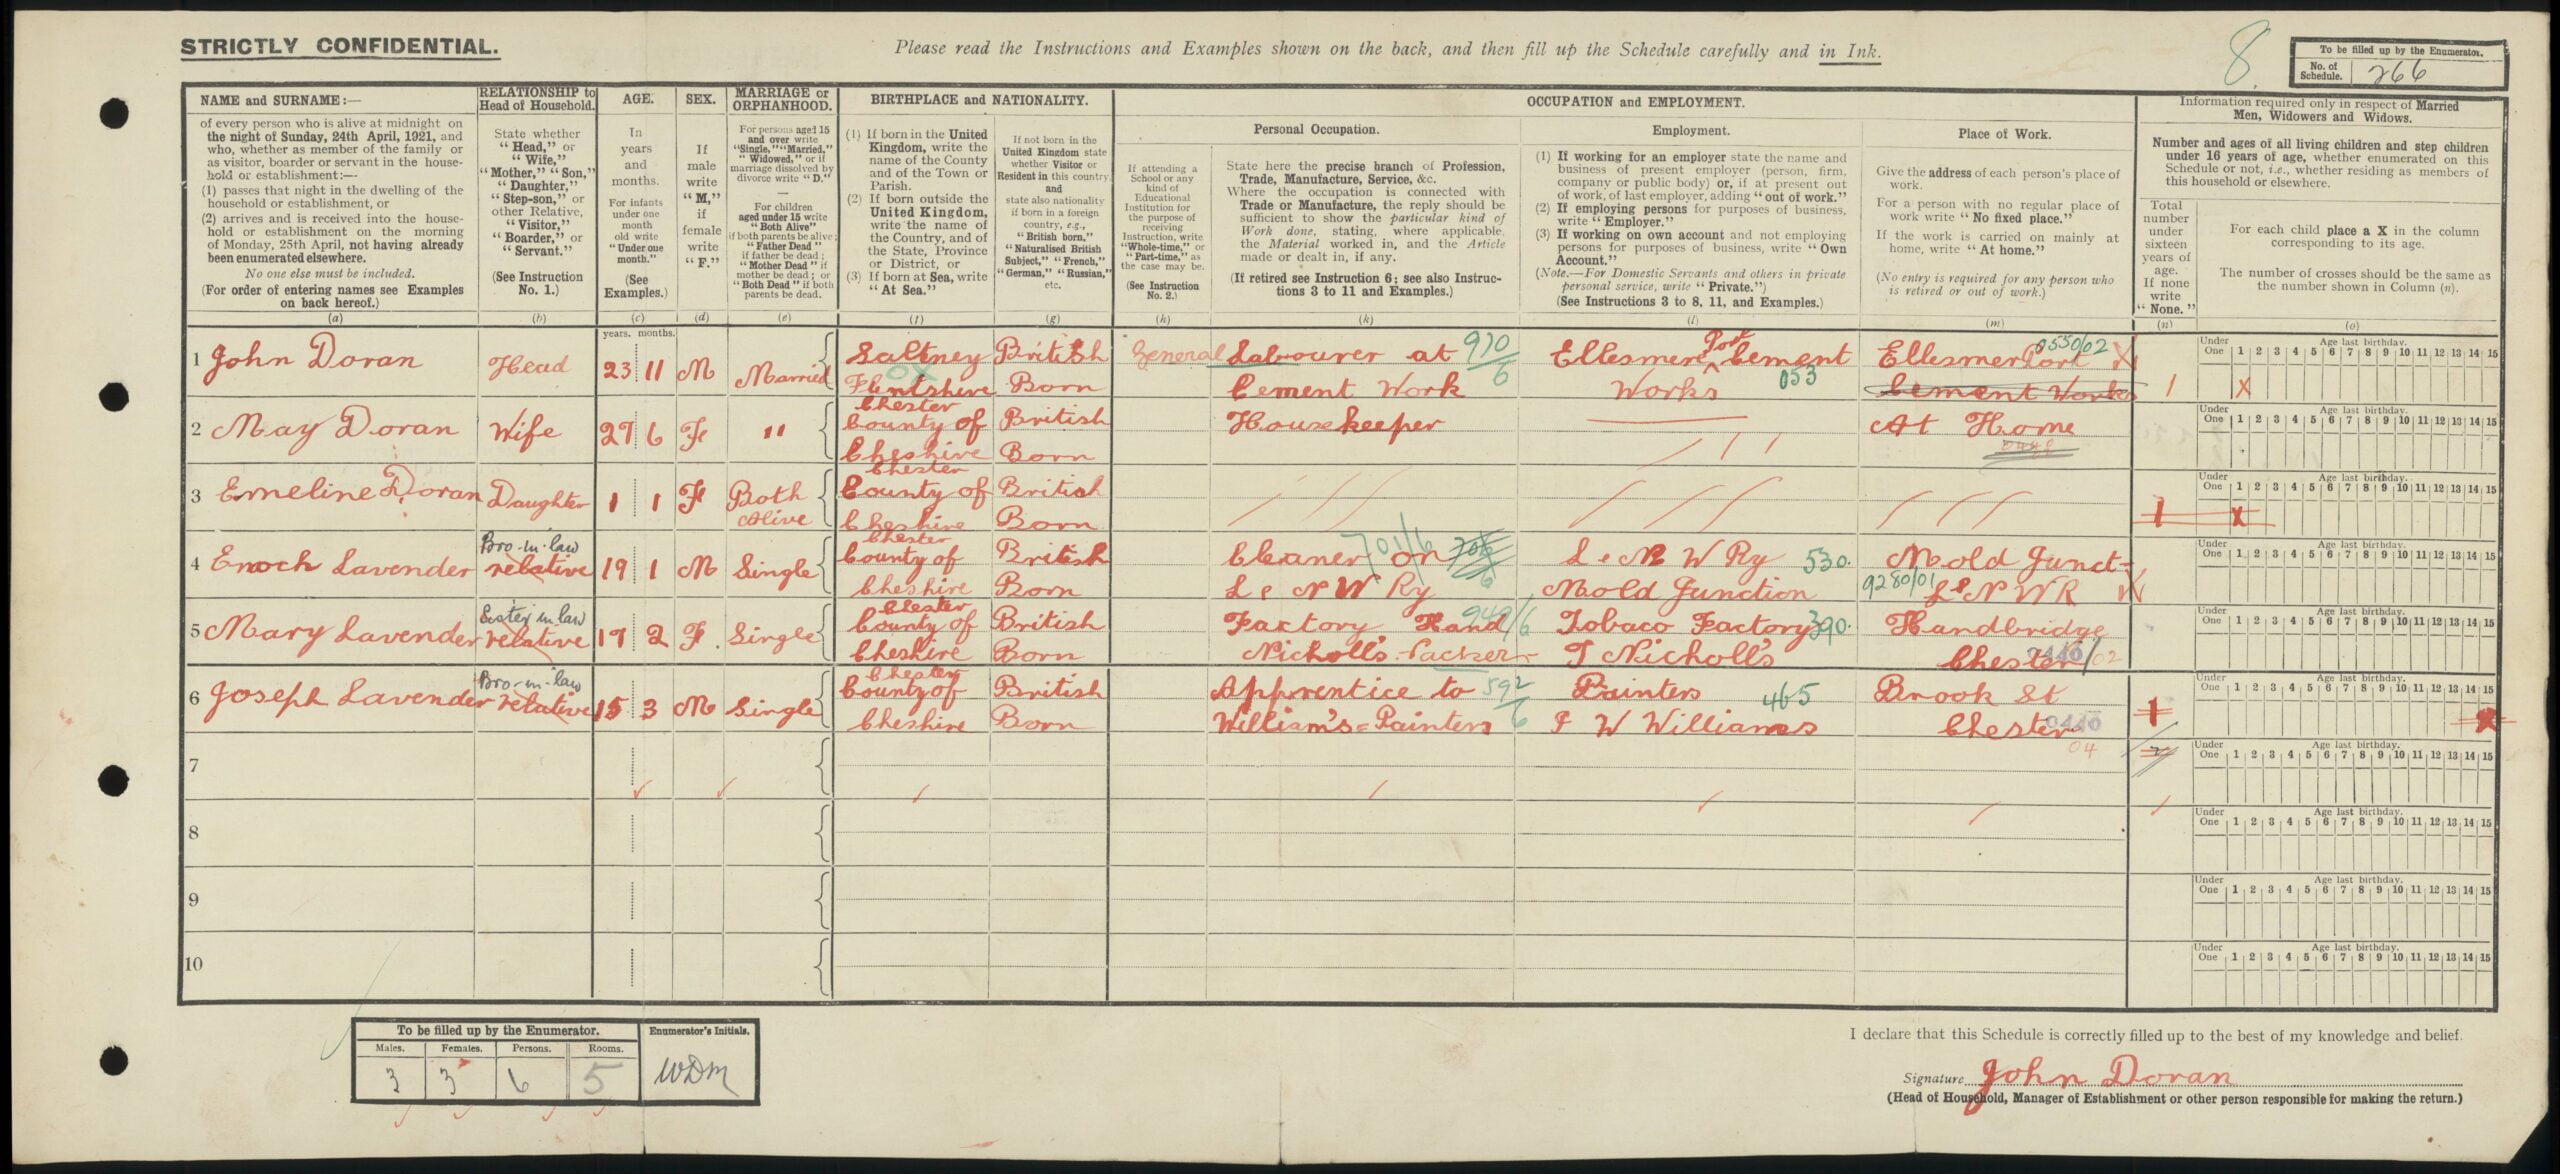 STRICTLY CONFIDENTIAL.
Please read the Instructions and Examples shown on the back, and then fill up the Schedule carefully and in Ink.
8.
To be filled up by the Enumerator.
No. of Schedule. 266
NAME and SURNAME:—
of every person who is alive at midnight on
the night of Sunday, 24th April, 1921, and
who, whether as member of the family or
as visitor, boarder or servant in the house-
hold or establishment:—
(1) passes that night in the dwelling of the
household or establishment, or
(2) arrives and is received into the house-
hold or establishment on the morning
of Monday, 25th April, not having already
been enumerated elsewhere.
No one else must be included.
(For order of entering names see Examples
on back hereof.)
(a)
RELATIONSHIP to
Head of Household.
State whether
"Head," or
"Wife,"
"Mother," "Son,"
"Daughter,"
"Step-son," or
other Relative,
"Visitor,"
"Boarder," or
"Servant."
(See Instruction
No. 1.)
(b)
AGE.
In
years
and
months.
For infants
under one
month
old write
"Under one
month."
(See
Examples.)
(c)
SEX.
If
male
write
"M,"
if
female
write
"F."
(d)
MARRIAGE or
ORPHANHOOD.
For persons aged 15
and over write
"Single," "Married,"
"Widowed," or if
marriage dissolved by
divorce write "D."
—
For children
aged under 15 write
"Both Alive"
if both parents be alive;
"Father Dead"
if father be dead;
"Mother Dead" if
mother be dead; or
"Both Dead" if both
parents be dead.
(e)
BIRTHPLACE and NATIONALITY.
(1) If born in the United
Kingdom, write the
name of the County
and of the Town or
Parish.
(2) If born outside the
United Kingdom,
write the name of
the Country, and of
the State, Province
or District, or
(3) If born at Sea, write
"At Sea."
(f)
If not born in the
United Kingdom state
whether Visitor or
Resident in this country,
and
state also nationality
if born in a foreign
country, e.g.,
"British born,"
"Naturalised British
Subject," "French,"
"German," "Russian,"
etc.
(g)
OCCUPATION and EMPLOYMENT.
If attending a
School or any
kind of
Educational
Institution for
the purpose of
receiving
Instruction, write
"Whole-time," or
"Part-time," as
the case may be.
(See Instruction
No. 2.)
(h)
Personal Occupation.
State here the precise branch of Profession,
Trade, Manufacture, Service, &c.
Where the occupation is connected with
Trade or Manufacture, the reply should be
sufficient to show the particular kind of
Work done, stating, where applicable,
the Material worked in, and the Article
made or dealt in, if any.
(If retired see Instruction 6; see also Instruc-
tions 3 to 11 and Examples.)
(k)
Employment.
(1) If working for an employer state the name and
business of present employer (person, firm,
company or public body) or, if at present out
of work, of last employer, adding "out of work."
(2) If employing persons for purposes of business,
write "Employer."
(3) If working on own account and not employing
persons for purposes of business, write "Own
Account."
(Note.—For Domestic Servants and others in private
personal service, write "Private.")
(See Instructions 3 to 8, 11, and Examples.)
(l)
Place of Work.
Give the address of each person's place of
work.
For a person with no regular place of
work write "No fixed place."
If the work is carried on mainly at
home, write "At home."
(No entry is required for any person who
is retired or out of work.)
(m)
Information required only in respect of Married
Men, Widowers and Widows.
Number and ages of all living children and step children
under 16 years of age, whether enumerated on this
Schedule or not, i.e., whether residing as members of
this household or elsewhere.
Total
number
under
sixteen
years of
age.
If none
write
"None."
(n)
For each child place a X in the column
corresponding to its age.
The number of crosses should be the same as
the number shown in Column (n).
(o)
years. months.
Under One Age last birthday. 1 2 3 4 5 6 7 8 9 10 11 12 13 14 15
1 John Doran Head 23 11 M Married Saltney British General Labourer at 970 Ellesmere Port Cement Ellesmer Port 0550/02
OX Flintshire Born Cement Work 6 Works 053 Cement Works 1 X
Under One Age last birthday. 1 2 3 4 5 6 7 8 9 10 11 12 13 14 15
2 May Doran Wife 27 6 F " Chester County of British Housekeeper At Home
Cheshire Born
Under One Age last birthday. 1 2 3 4 5 6 7 8 9 10 11 12 13 14 15
3 Emeline Doran Daughter 1 1 F Both Alive Chester County of British
Cheshire Born 1 X
Under One Age last birthday. 1 2 3 4 5 6 7 8 9 10 11 12 13 14 15
4 Enoch Lavender Bro-in-law relative 19 1 M Single Chester County of British Cleaner on 701/6 L & N W Ry 530. Mold Junct-
Cheshire Born L & N W Ry Mold Junction 9280/01 L & N W R
Under One Age last birthday. 1 2 3 4 5 6 7 8 9 10 11 12 13 14 15
5 Mary Lavender Sister in law relative 17 2 F. Single Chester County of British Factory Hand 949/6 Tobaco Factory 390. Handbridge
Cheshire Born Nicholl's - Packer T Nicholl's Chester 0440/02
Under One Age last birthday. 1 2 3 4 5 6 7 8 9 10 11 12 13 14 15
6 Joseph Lavender Bro-in-law relative 15 3 M Single Chester County of British Apprentice to 592 Painters 465 Brook St 1
Cheshire Born William's = Painters 6 F W Williams Chester 0440 X
04
7 Under One Age last birthday. 1 2 3 4 5 6 7 8 9 10 11 12 13 14 15
8 Under One Age last birthday. 1 2 3 4 5 6 7 8 9 10 11 12 13 14 15
9 Under One Age last birthday. 1 2 3 4 5 6 7 8 9 10 11 12 13 14 15
10 Under One Age last birthday. 1 2 3 4 5 6 7 8 9 10 11 12 13 14 15
To be filled up by the Enumerator. Enumerator's Initials.
Males. Females. Persons. Rooms.
3 3 6 5 WDM
I declare that this Schedule is correctly filled up to the best of my knowledge and belief.
Signature John Doran
(Head of Household, Manager of Establishment or other person responsible for making the return.)